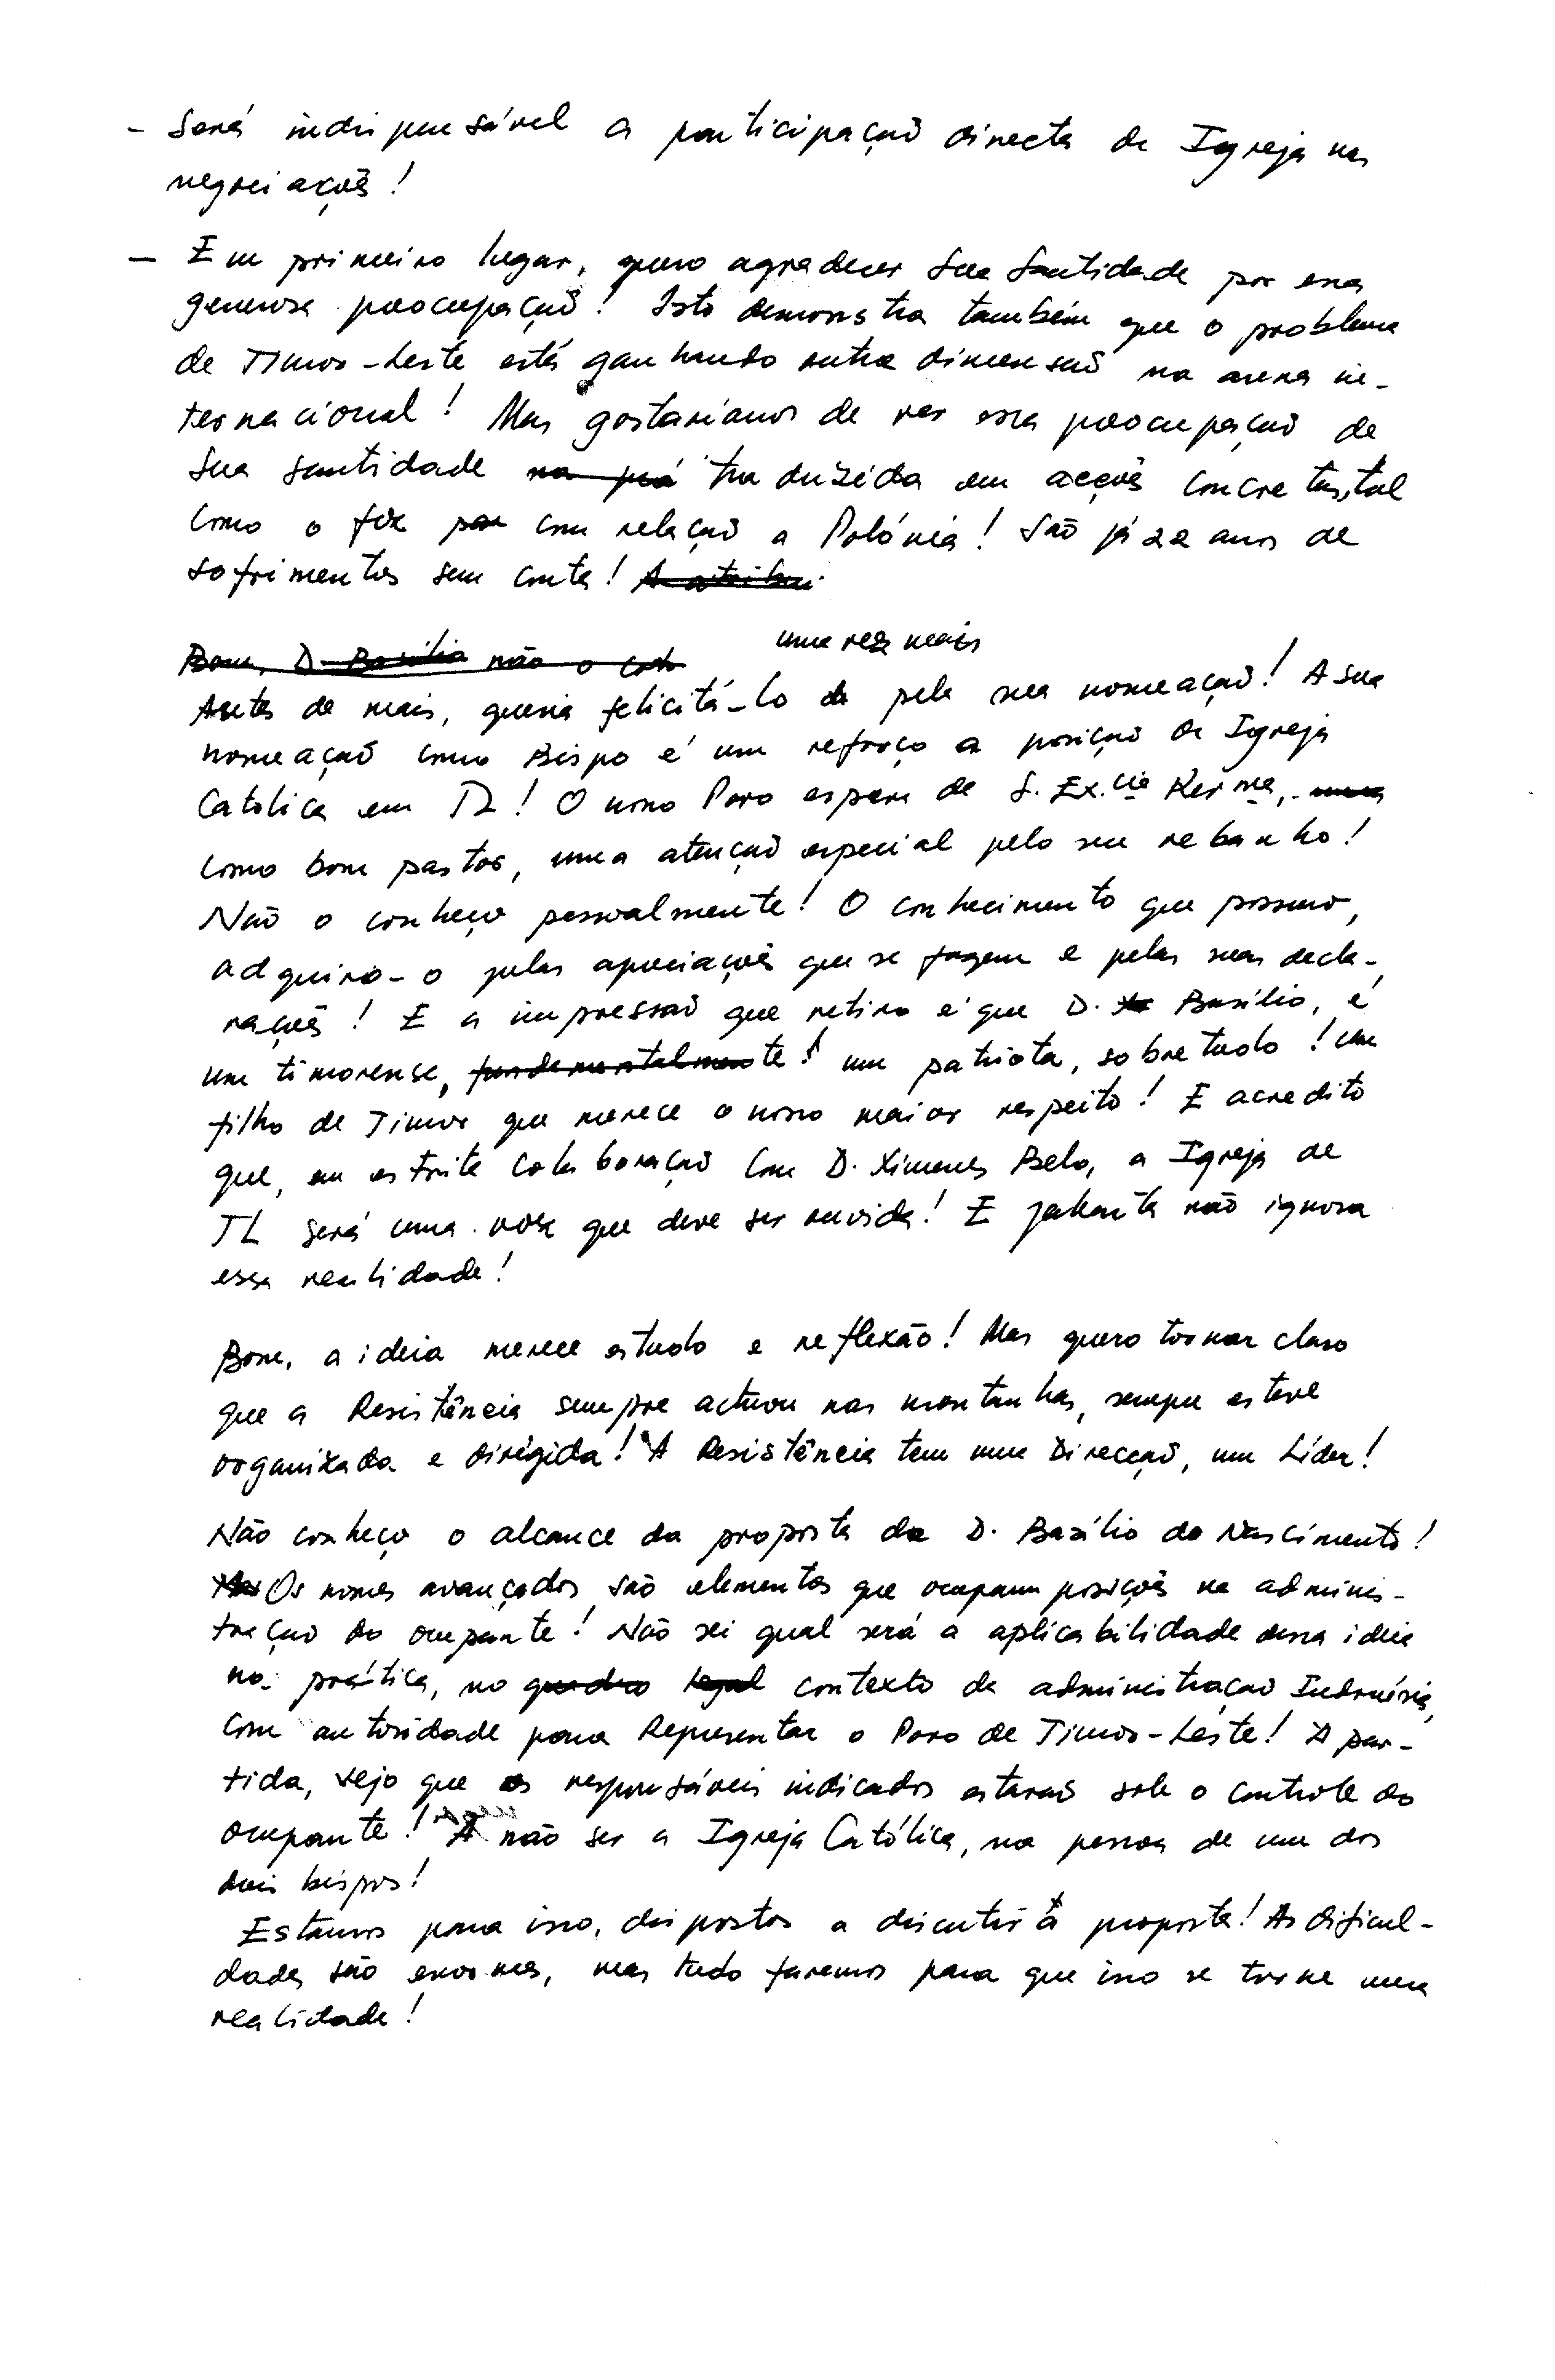 - Será indispensável a participação directa da Igreja nas
negociações!
- Em primeiro lugar, quero agradecer Sua Santidade por essa
generosa preocupação! Isto demonstra também que o problema
de Timor-Leste está ganhando outra dimensão na arena in-
ternacional! Mas gostaríamos de ver essa preocupação de
Sua Santidade traduzida em acções concretas, tal
como o fez com relação a Polónia! São já 22 anos de
sofrimentos sem conta!
Bom, D. Basílio não o
uma vez mais
Antes de mais, queria felicitá-lo pela sua nomeação! A sua
nomeação como Bispo é um reforço a posição da Igreja
Católica em TL! O nosso Povo espera de S. Ex.cia Rev.ma,
como bom pastor, uma atenção especial pelo seu rebanho!
Não o conheço pessoalmente! O conhecimento que possuo,
adquiro-o pelas apreciações que se fazem e pelas suas decla-
rações! E a impressão que retiro é que D. Basílio, é
um timorense, fundamentalmente! um patriota, sobretudo! um
filho de Timor que merece o nosso maior respeito! E acredito
que, em estrita colaboração com D. Ximenes Belo, a Igreja de
TL será uma voz que deve ser ouvida! E Jakarta não ignora
essa realidade!
Bom, a ideia merece estudo e reflexão! Mas quero tornar claro
que a Resistência sempre actuou nas montanhas, sempre esteve
organizada e dirigida! A Resistência tem uma Direcção, um Líder!
Não conheço o alcance da proposta de D. Basílio do Nascimento!
Os nomes avançados são elementos que ocupam posições na adminis-
tração do ocupante! Não sei qual será a aplicabilidade dessa ideia
na prática, no quadro legal contexto da administração Indonésia,
com autoridade para Representar o Povo de Timor-Leste! A par-
tida, vejo que os responsáveis indicados estarão sob o controle do
ocupante! A não ser a Igreja Católica, na pessoa de um dos
dois bispos!
Estamos para isso, dispostos a discutir a proposta! As dificul-
dades são enormes, mas tudo faremos para que isso se torne uma
realidade!